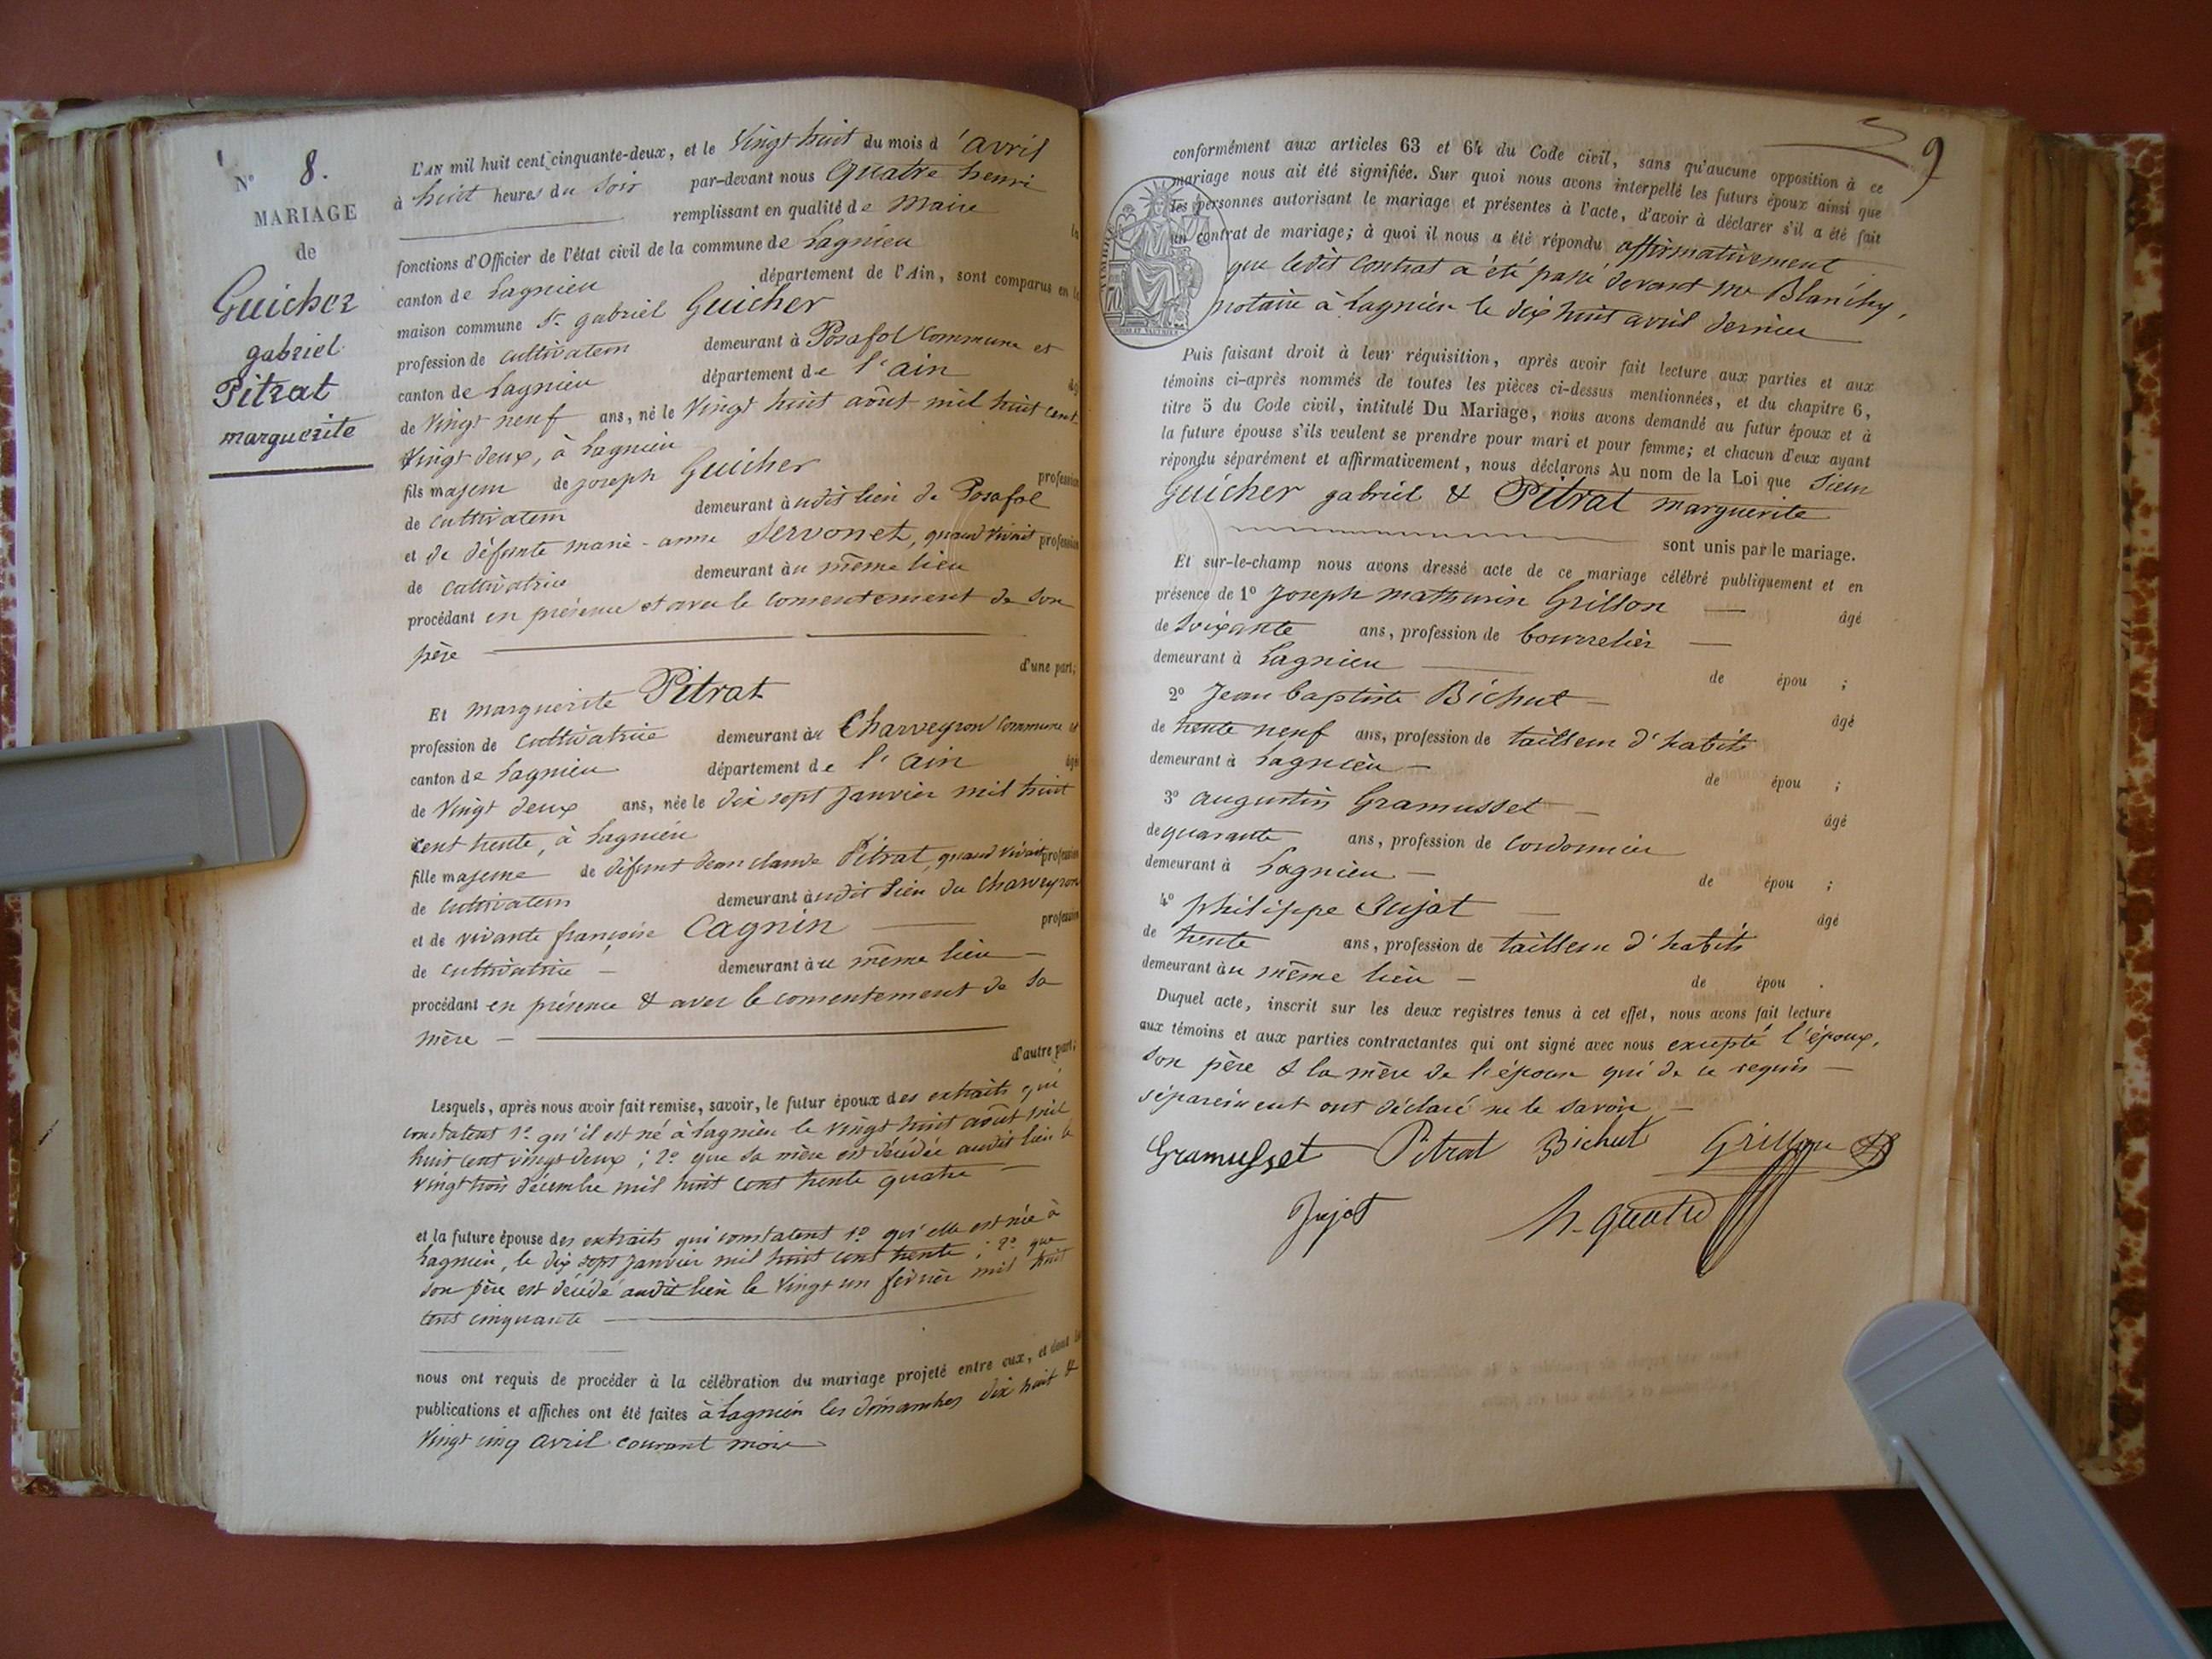 N° 8.
MARIAGE
de
Guicher
gabriel
Pitrat
marguerite
L'AN mil huit cent cinquante-deux, et le Vingt huit du mois d'avril
à huit heures du soir par-devant nous Quatre henri
remplissant en qualité de Maire la
fonctions d'Officier de l'état civil de la commune de Lagnieu
canton de Lagnieu département de l'Ain, sont comparus en la
maison commune Sr. gabriel Guicher
profession de cultivateur demeurant à Posafol Commune et
canton de Lagnieu département de l'ain âgé
de Vingt neuf ans, né le Vingt huit août mil huit cent
Vingt deux, à Lagnieu
fils majeur de joseph Guicher profession
de cultivateur demeurant audit lieu de Posafol
et de défunte marie-anne Servonet, quand vivait profession
de cultivatrice demeurant au même lieu
procédant en présence et avec le consentement de son
père d'une part;
Et marguerite Pitrat
profession de cultivatrice demeurant au Charveyron Commune et
canton de Lagnieu département de l'ain âgé
de Vingt deux ans, née le dix sept janvier mil huit
cent trente, à Lagnieu
fille majeure de défunt Jean claude Pitrat, quand vivait profession
de cultivateur demeurant audit lieu du Charveyron
et de vivante françoise Cagnin profession
de cultivatrice demeurant au même lieu
procédant en présence & avec le consentement de sa
mère d'autre part;
Lesquels, après nous avoir fait remise, savoir, le futur époux des extraits qui
constatent 1° qu'il est né à Lagnieu le vingt huit août mil
huit cent vingt deux ; 2° que sa mère est décédée audit lieu le
vingt trois décembre mil huit cent trente quatre
et la future épouse des extraits qui constatent 1° qu'elle est née à
Lagnieu, le dix sept janvier mil huit cent trente ; 2° que
son père est décédé audit lieu le Vingt un février mil huit
cent cinquante
nous ont requis de procéder à la célébration du mariage projeté entre eux, et dont les
publications et affiches ont été faites à Lagnieu les dimanches dix huit &
Vingt cinq avril courant mois
9
conformément aux articles 63 et 64 du Code civil, sans qu'aucune opposition à ce
mariage nous ait été signifiée. Sur quoi nous avons interpellé les futurs époux ainsi que
les personnes autorisant le mariage et présentes à l'acte, d'avoir à déclarer s'il a été fait
un contrat de mariage; à quoi il nous a été répondu affirmativement
que ledit contrat a été passé devant Me Blanchy,
notaire à Lagnieu le dix huit avril dernier
Puis faisant droit à leur réquisition, après avoir fait lecture aux parties et aux
témoins ci-après nommés de toutes les pièces ci-dessus mentionnées, et du chapitre 6,
titre 5 du Code civil, intitulé Du Mariage, nous avons demandé au futur époux et à
la future épouse s'ils veulent se prendre pour mari et pour femme; et chacun d'eux ayant
répondu séparément et affirmativement, nous déclarons Au nom de la Loi que Sieur
Guicher gabriel & Pitrat marguerite
sont unis par le mariage.
Et sur-le-champ nous avons dressé acte de ce mariage célébré publiquement et en
présence de 1° Joseph mathurin Grillon âgé
de soixante ans, profession de bourrelier
demeurant à Lagnieu de épou ;
2° Jean baptiste Bichut âgé
de trente neuf ans, profession de tailleur d'habits
demeurant à Lagnieu de épou ;
3° augustin Gramusset âgé
de quarante ans, profession de Cordonnier
demeurant à Lagnieu de épou ;
4° philippe Jujat âgé
de trente ans, profession de tailleur d'habits
demeurant au même lieu de épou .
Duquel acte, inscrit sur les deux registres tenus à cet effet, nous avons fait lecture
aux témoins et aux parties contractantes qui ont signé avec nous excepté l'époux,
son père & la mère de l'épouse qui de ce requis
séparément ont déclaré ne le savoir
Gramusset Pitrat Bichut Grillon
Jujat h. Quatre